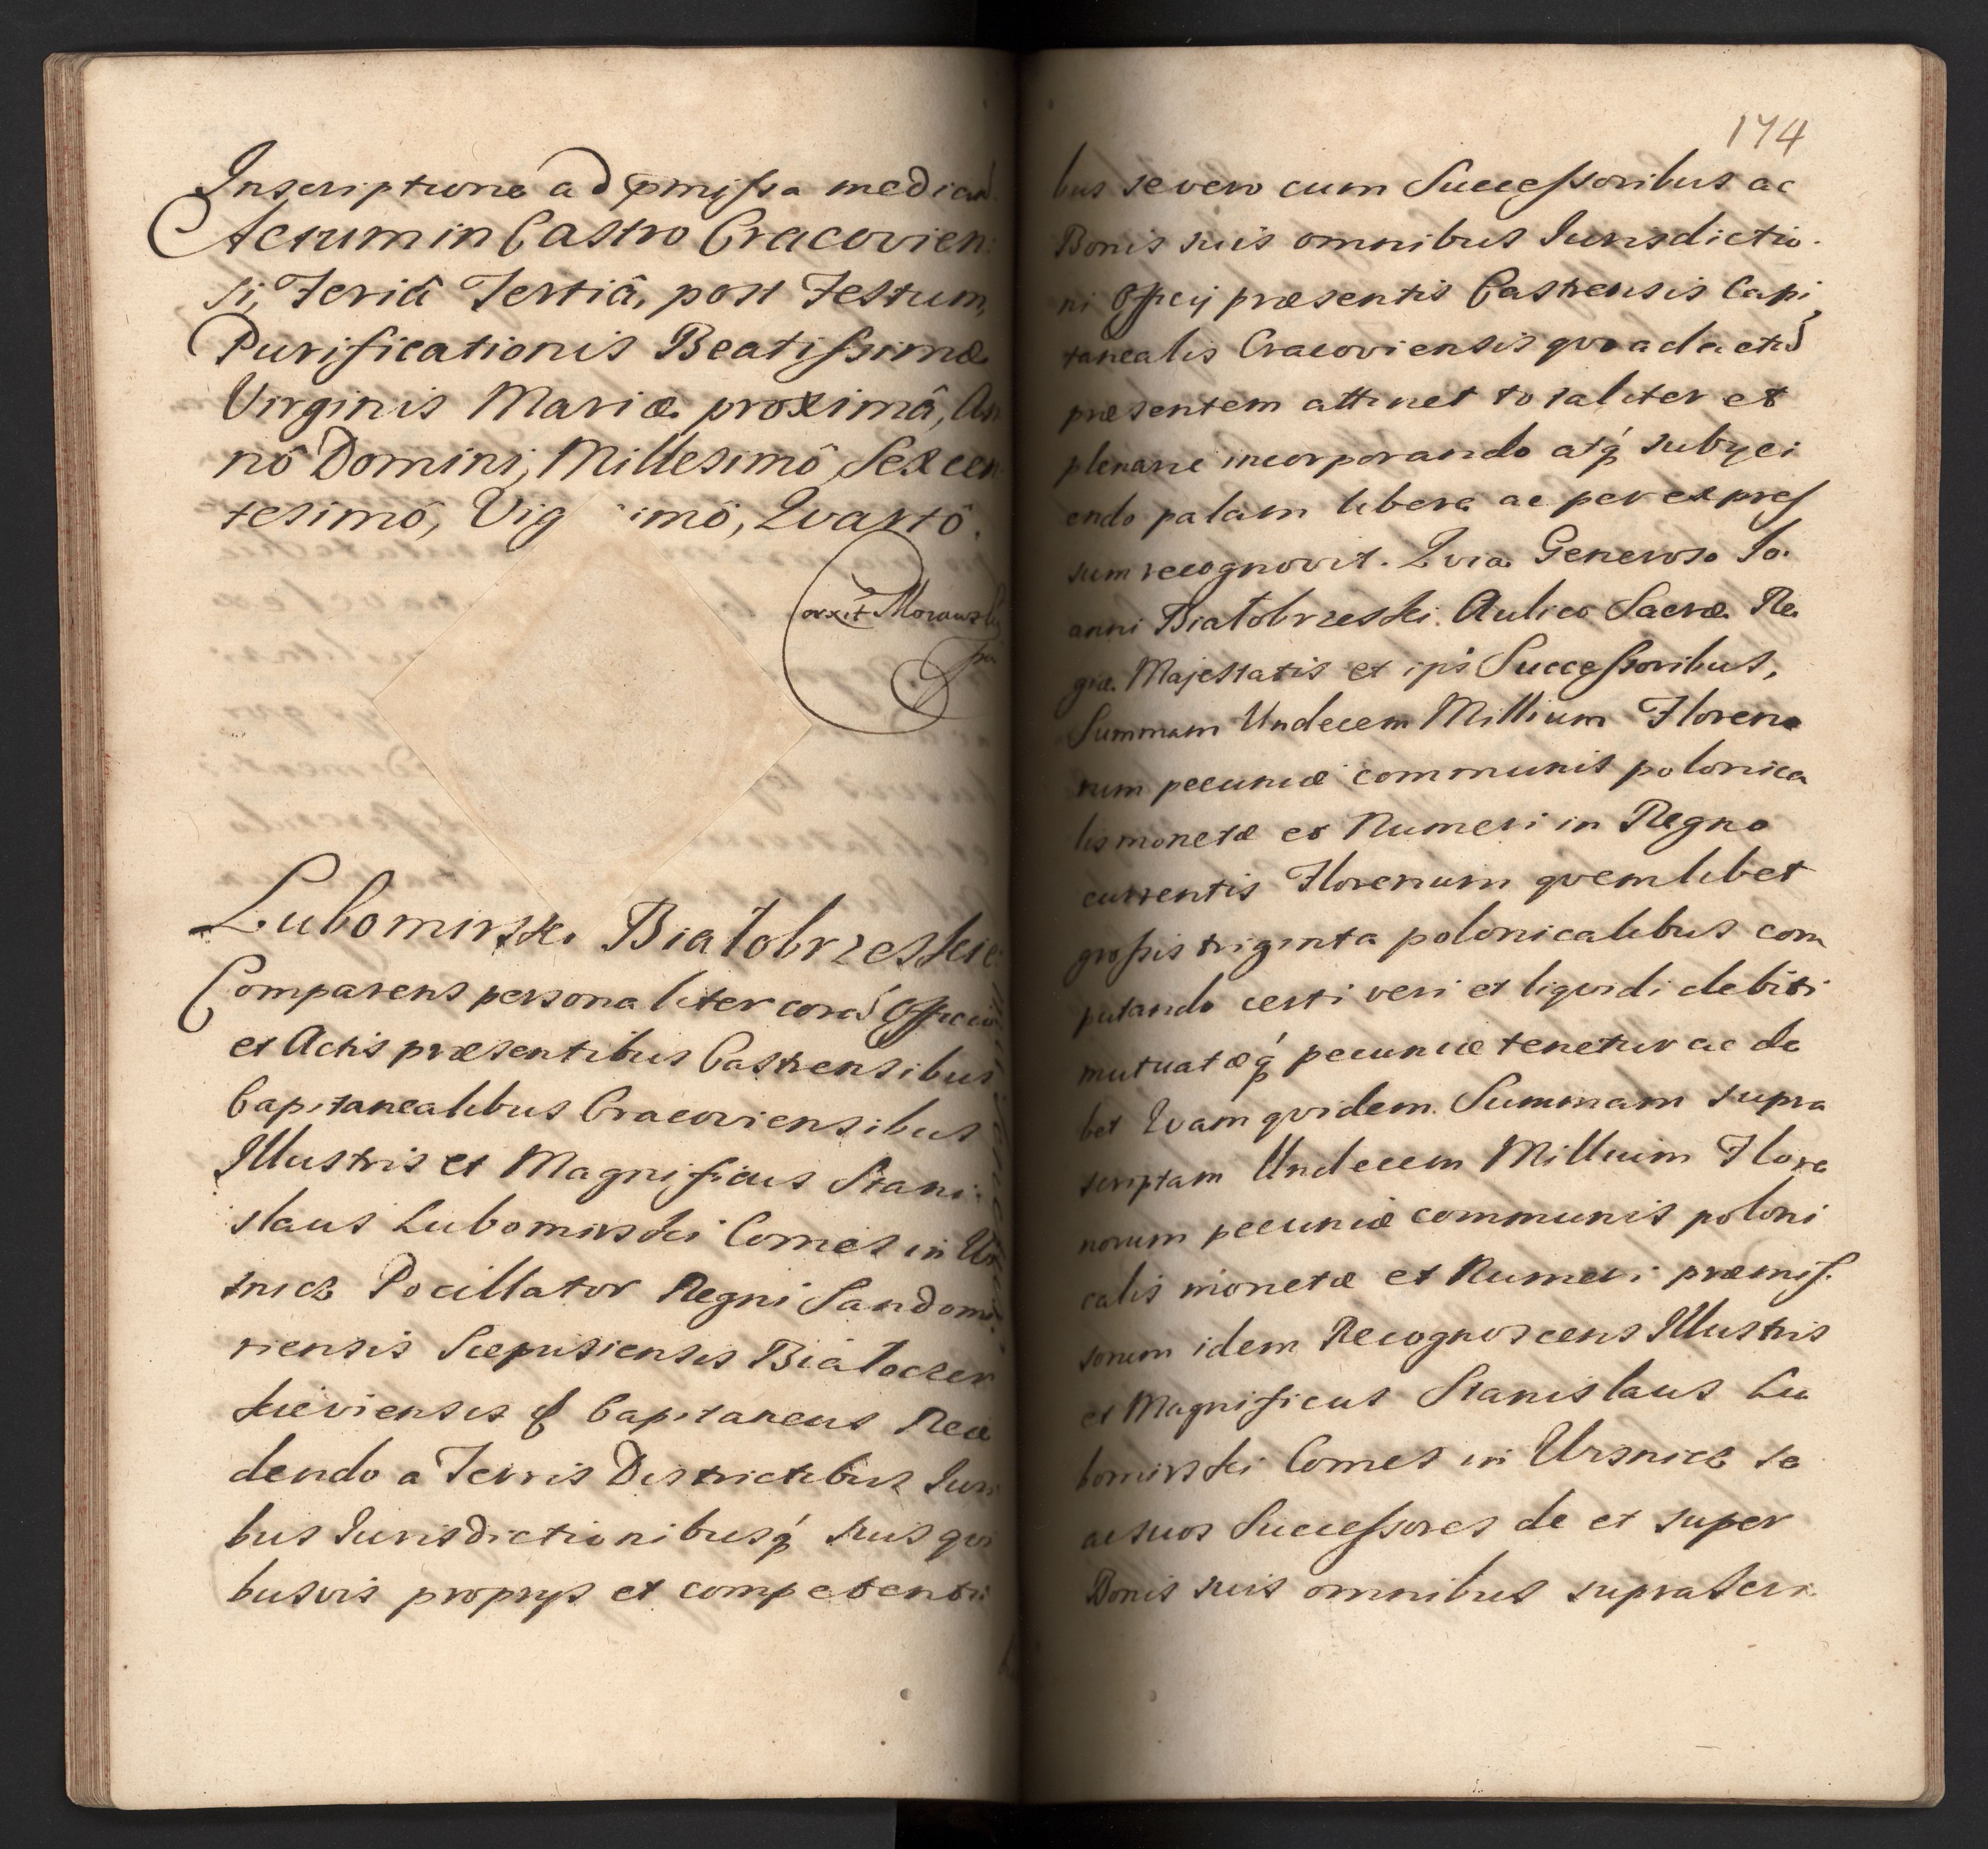 Inscriptione ad pmissa median
Actum in Castro Cracovien:
si, Feriâ Tertiâ, post Festum,
Purificationis Beatissimæ
Virginis Mariæ proximâ, An
nô Domini, Millesimô Sexcen
tesimô, Vig imô, Qvartô.
Corxit Morawski
pa
Lubomirski Białobrzeskie
Comparens personaliter corã Officio
et Actis præsentibus Castrensibus
Capitanealibus Cracoviensibus
Illustris et Magnificus Stani:
slaus Lubomirski Comes in Ur
snicz Pocillator Regni Sandomi
riensis Scepusiensis Białocer
kieviensis Capitaneus Rece
dendo a Terris Districtibus Juri
bus Jurisdictionibusq́ suis qvi
busvis proprijs et competenti
174
bus se vero cum Successoribus ac
Bonis suis omnibus Jurisdictio.
ni Officij præsentis Castrensis Capi
tanealis Cracoviensis qvo ad actũ
præsentem attinet totaliter et
plenarie incorporando atq́ subijci
endo palam libere ac per expres
sum recognovit. Qvia Generoso Jo.
anni Białobrzeski Aulico Sacræ Re
giæ Majestatis et ipi Successoribus,
Summam Undecem Millium Floreno
rum pecuniæ communis polonica
lis monetæ et Numeri in Regno
currentis Florenum qvemlibet
grossis triginta polonicalibus com
putando certi veri et liqvidi debiti
mutuatæq́ pecuniæ tenetur ac de
bet Qvam qvidem Summam supra
scriptam Undecem Millium Flore
norum pecuniæ communis poloni
calis monetæ et Numeri præmis.
sorum idem Recognoscens Illustris
et Magnificus Stanislaus Lu
bomirski Comes in Ursnicz se
ac suos Successores de et super
Bonis suis omnibus suprascri